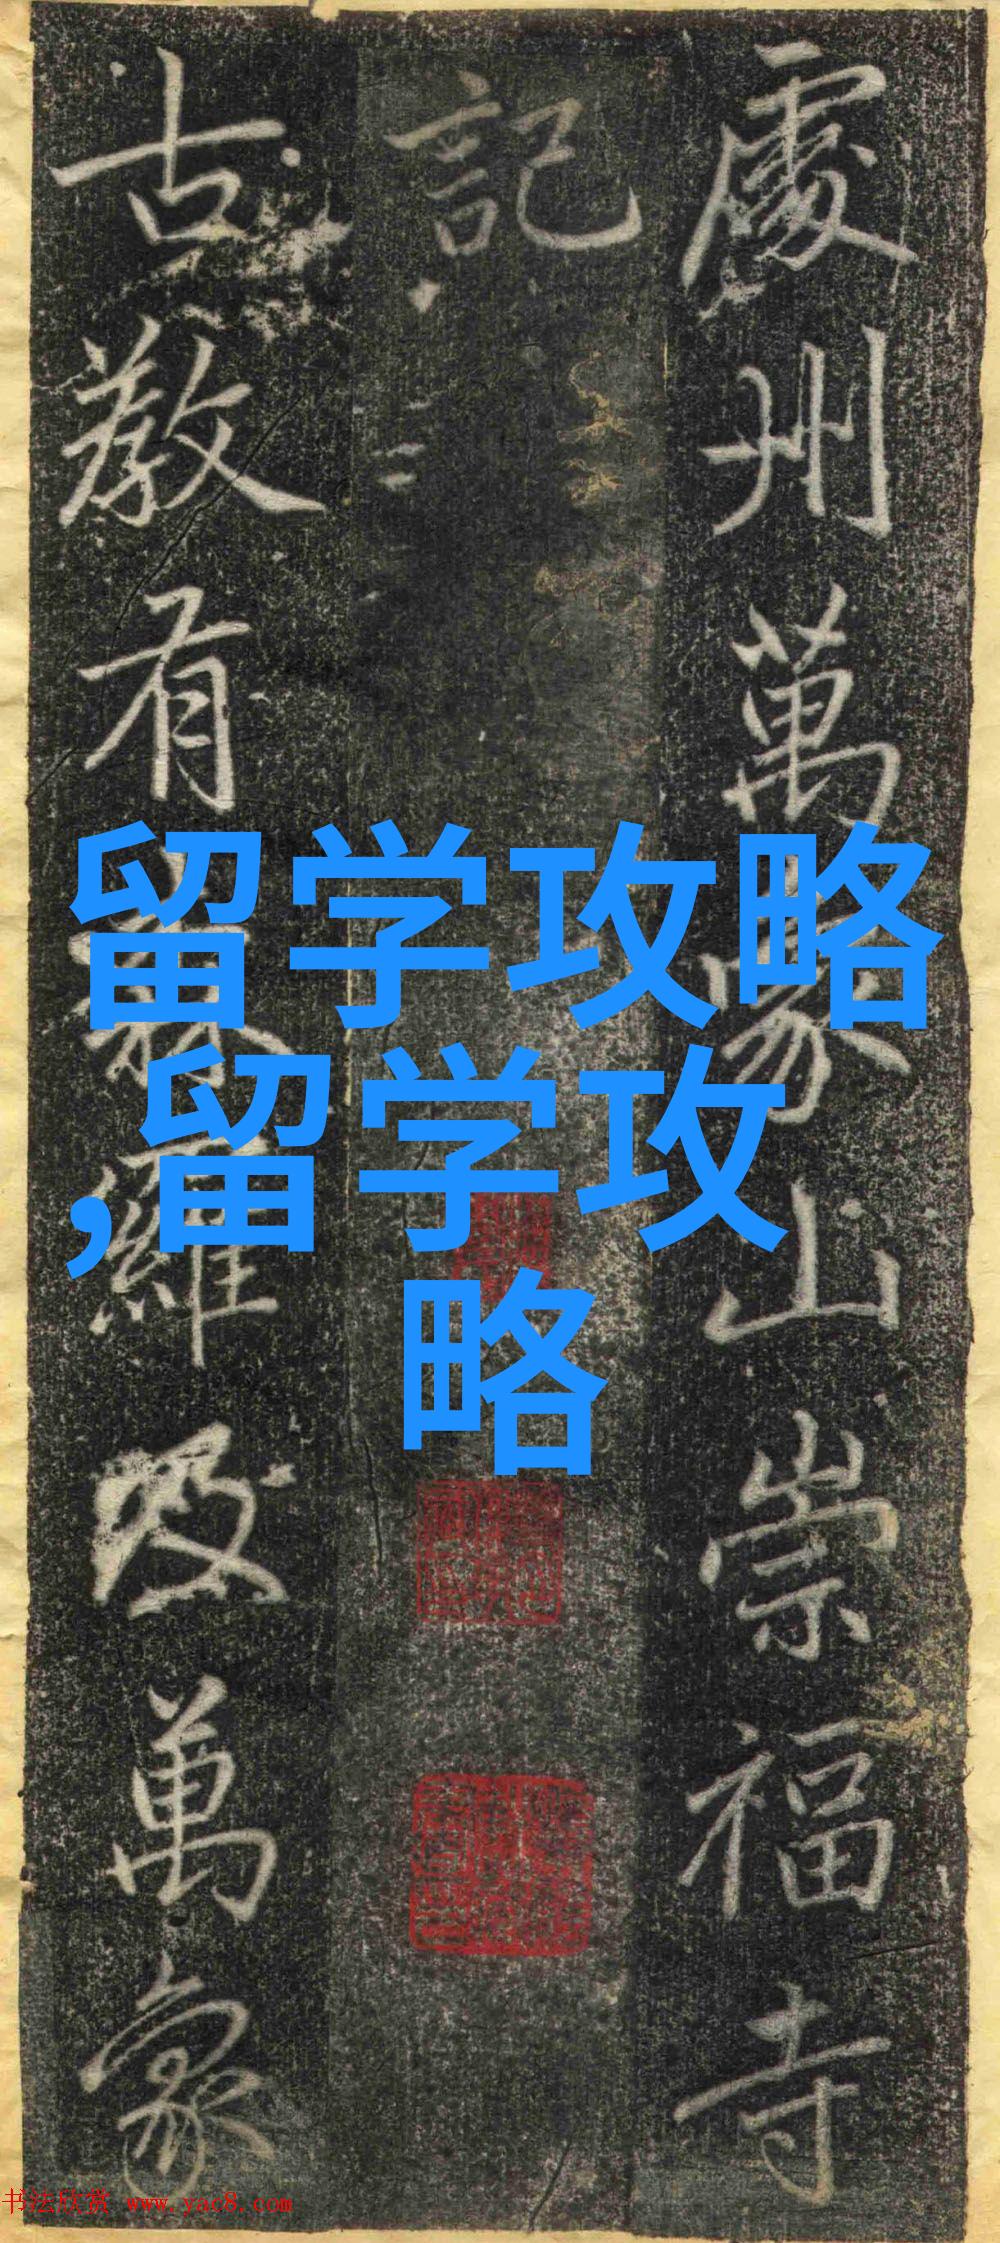 處州萬象山崇福寺
記
古教有森羅及萬象
留学攻略
,留学攻
略
书法欣赏 www.yac8.com